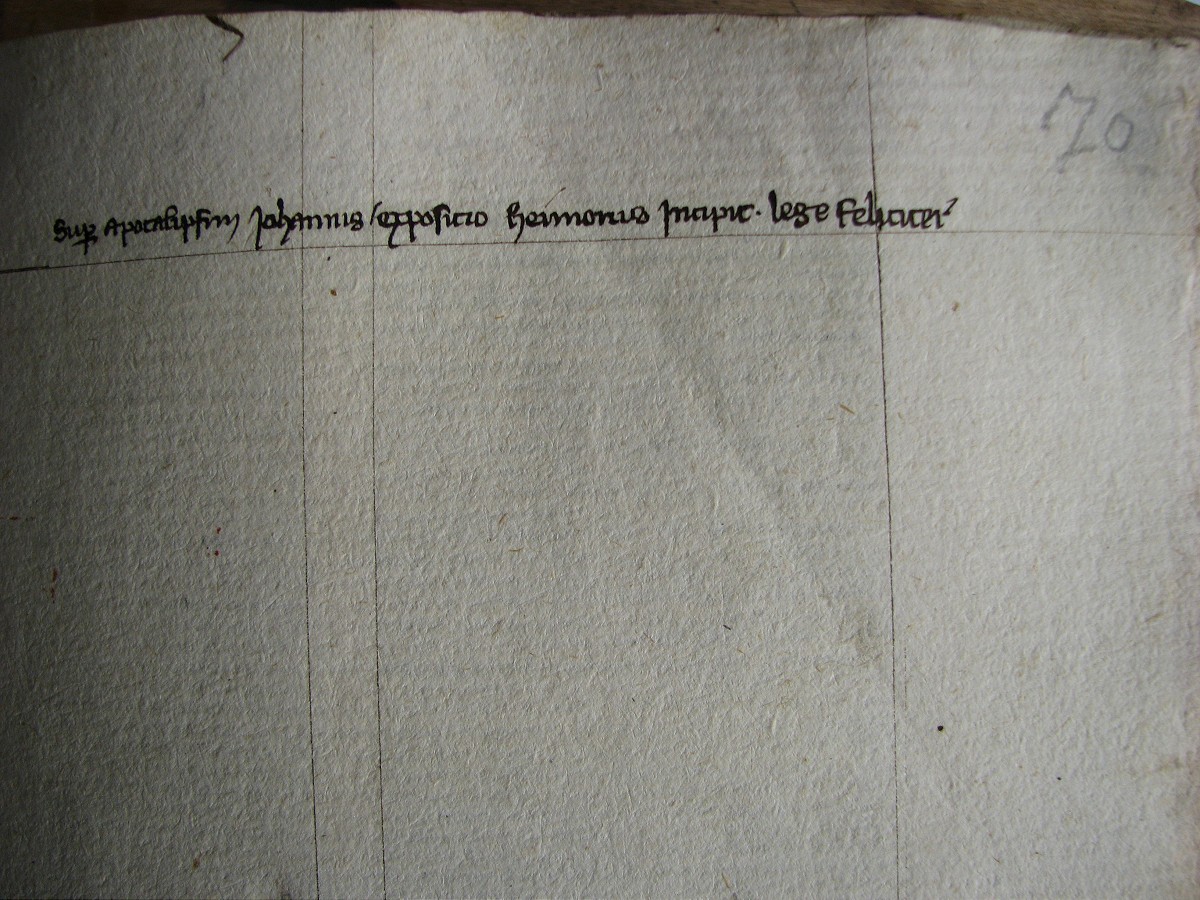 70
Sup Apocalipsim Johannis expositio heimonis Incipit · lege feliciter